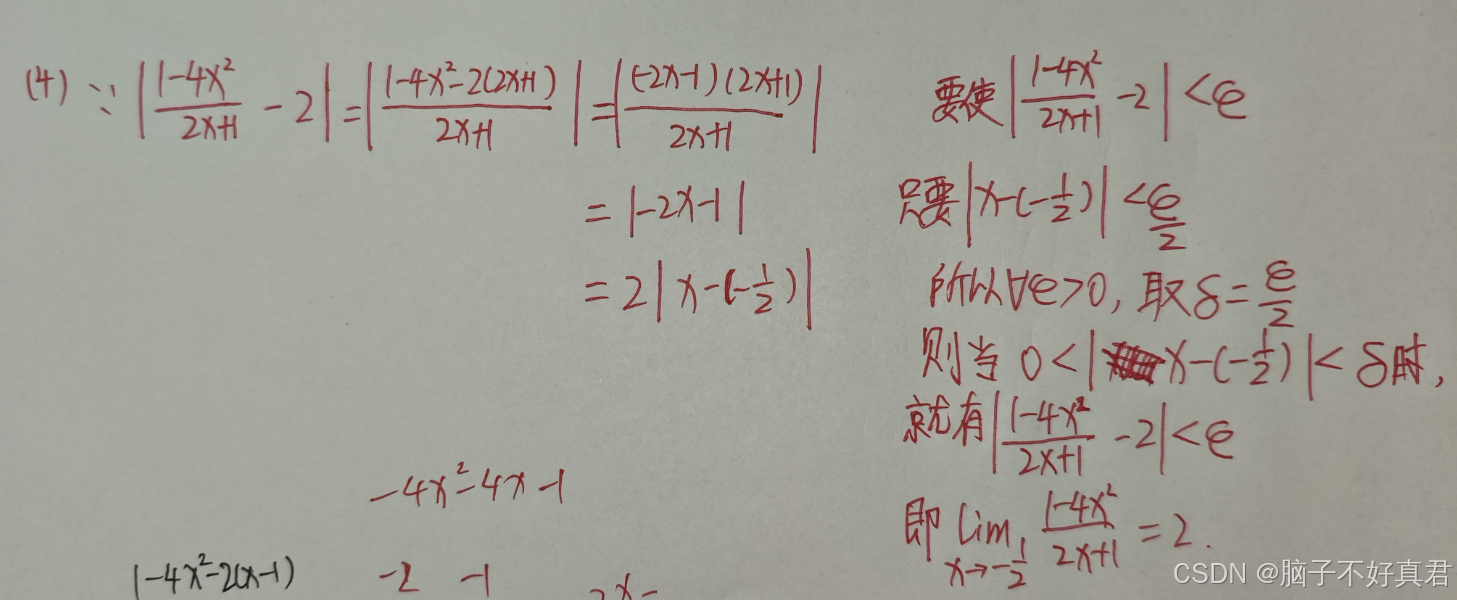 (4) ∵ |(1-4x²)/(2x+1) - 2| = |(1-4x²-2(2x+1))/(2x+1)| = |((-2x-1)(2x+1))/(2x+1)|
= |-2x-1|
= 2|x-(-1/2)|
要使|(1-4x²)/(2x+1) -2| <ε
只要|x-(-1/2)| <ε/2
所以∀ε>0, 取δ=ε/2
则当 0<|x-(-1/2)|<δ时,
就有|(1-4x²)/(2x+1) -2|<ε
即 lim x→-1/2 (1-4x²)/(2x+1) =2.
-4x²-4x-1
1-4x²-2(x-1)
-2 -1
CSDN @脑子不好真君